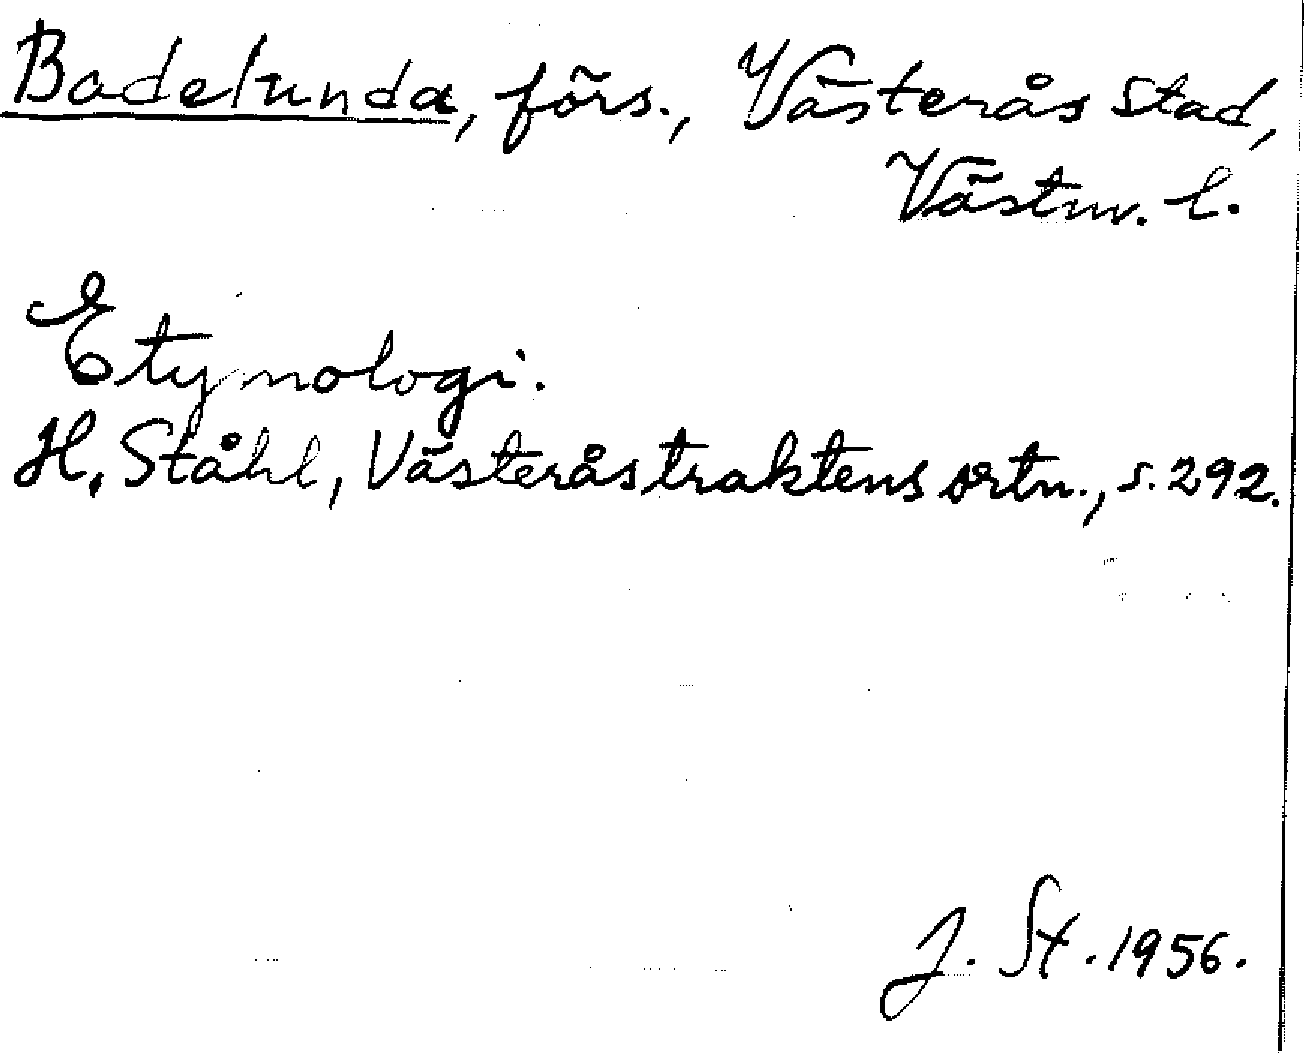 Badelunda, förs., Västerås stad,
Västm. l.
Etymologi.
H. Ståhl, Västeråstraktens ortn., s. 292.
J. St. 1956.